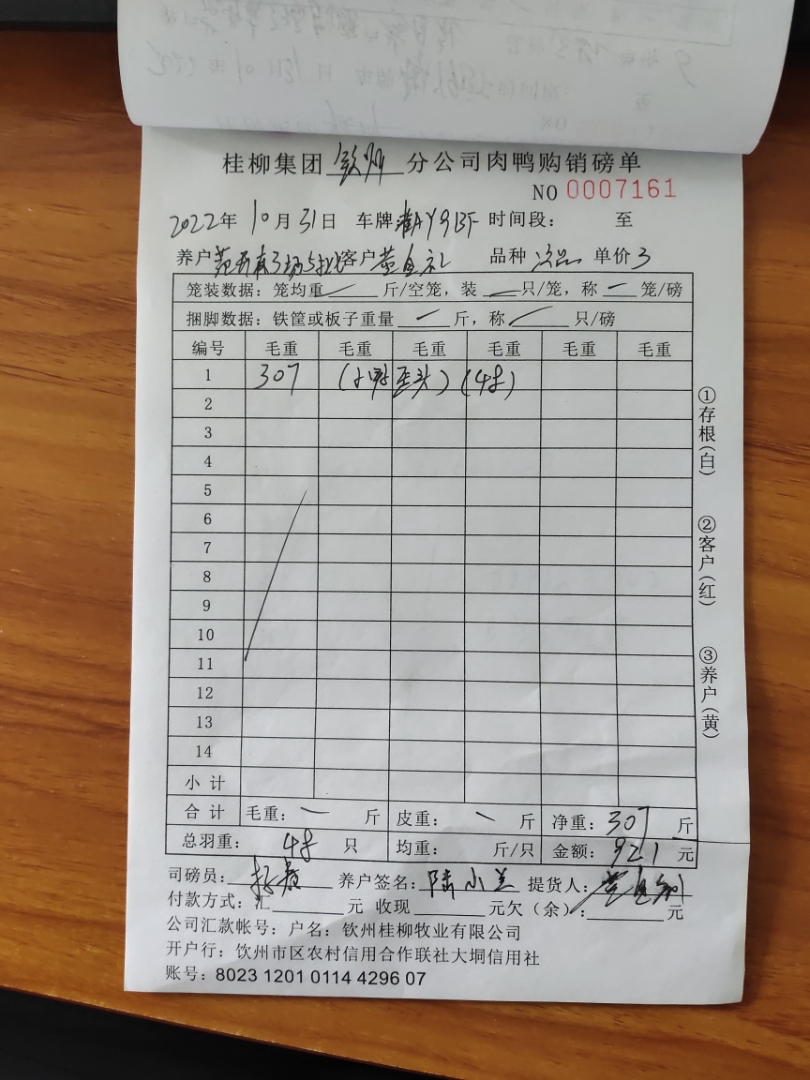 桂柳集团 钦州 分公司肉鸭购销磅单
NO 0007161
2022年 10月 31日 车牌 AY9BF 时间段: 至
养户 客户 黄 礼 品种 次品 单价 3
笼装数据:笼均重 斤/空笼,装 — 只/笼,称 — 笼/磅
捆脚数据:铁筐或板子重量 — 斤,称 只/磅
编号 毛重 毛重 毛重 毛重 毛重 毛重
1 307 (小鸭歪头)
2
3
4
5
6
7
8
9
10
11
12
13
14
小计
合计 毛重: — 斤 皮重: — 斤 净重: 307 斤
总羽重: 只 均重: 斤/只 金额: 921 元
司磅员: 养户签名: 陆小兰 提货人:
付款方式:汇 元 收现 元欠(余): 元
公司汇款帐号:户名:钦州桂柳牧业有限公司
开户行:饮州市区农村信用合作联社大垌信用社
账号:8023 1201 0114 4296 07
①存根(白)
②客户(红)
③养户(黄)